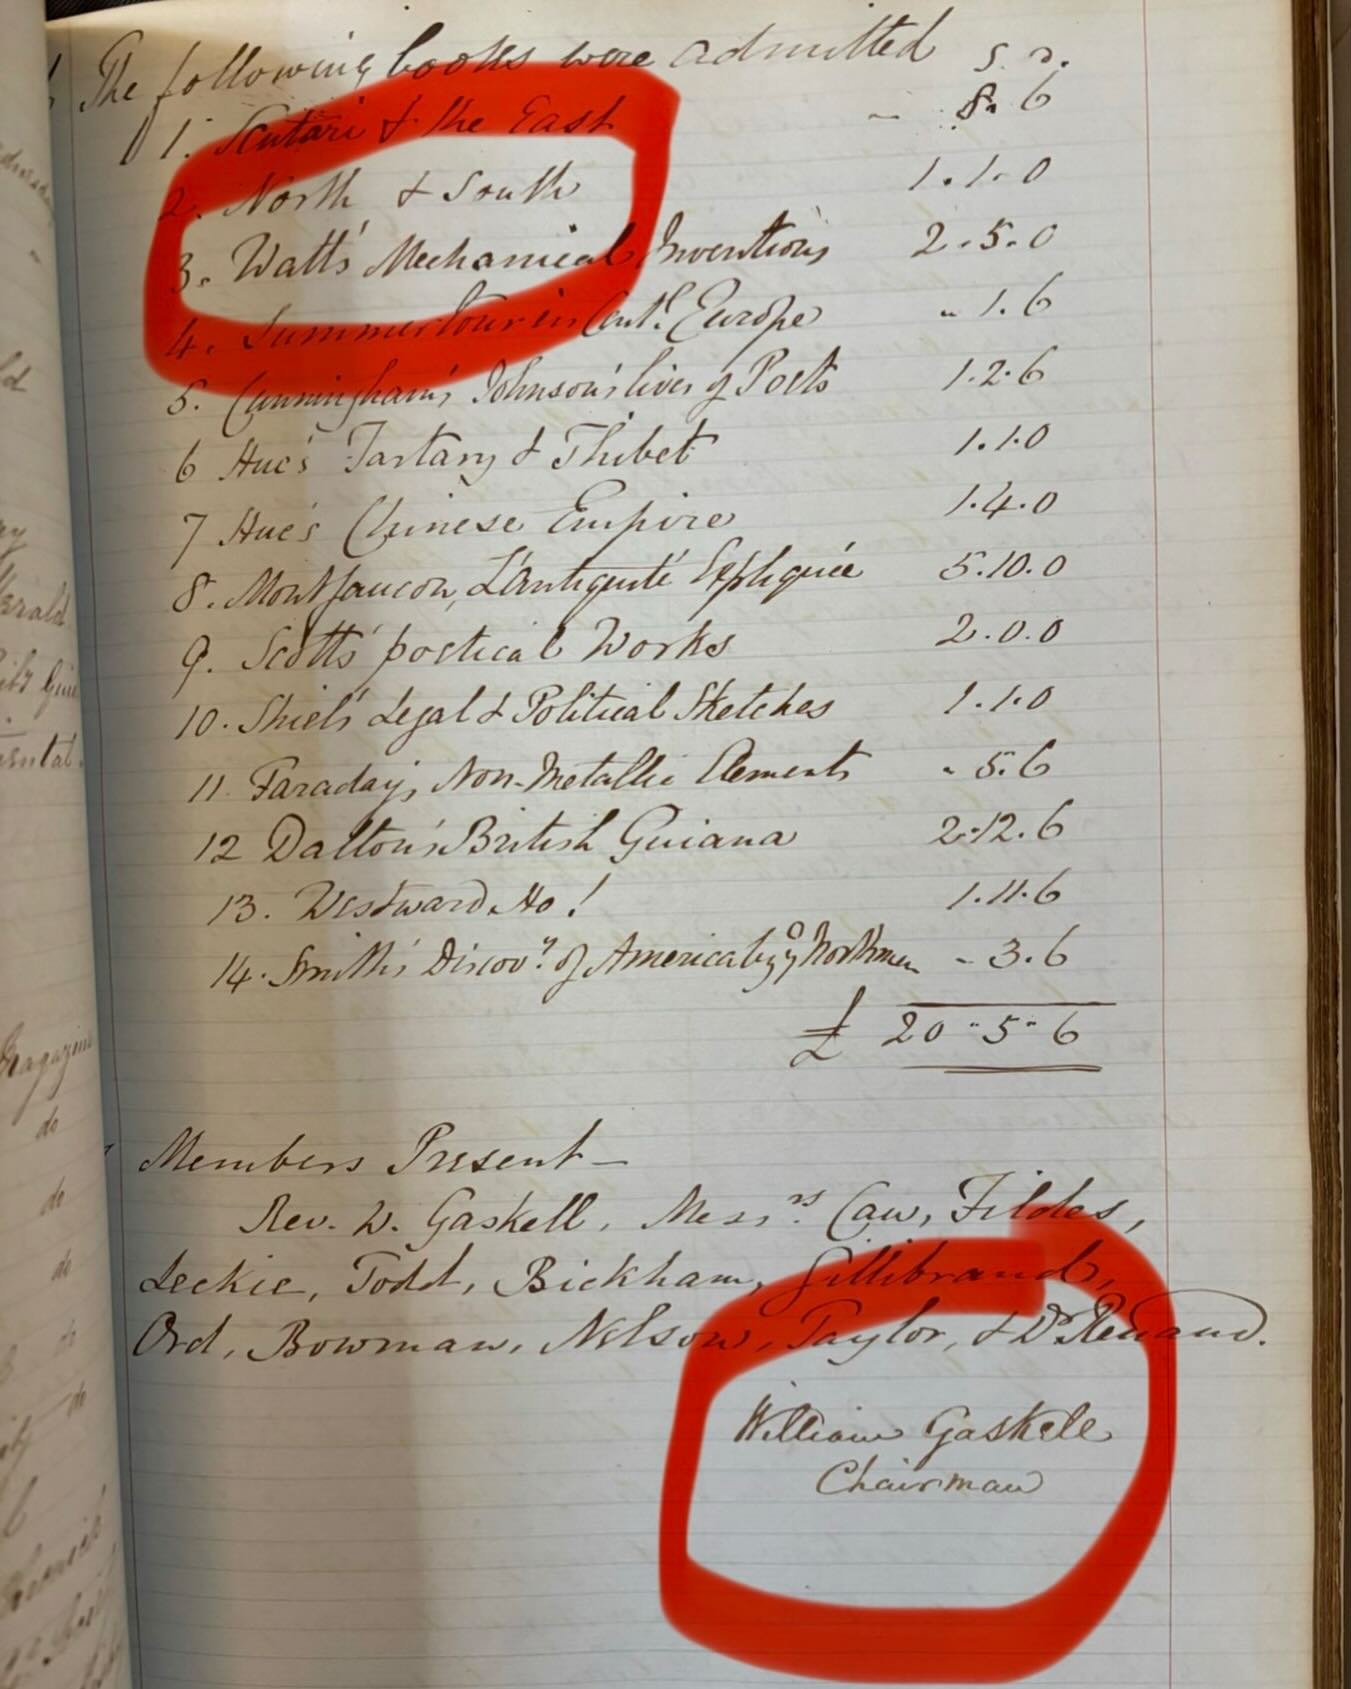 The following books were admitted s. d.
1. Scutari & the East - 8. 6
2. North & South 1. 1. 0
3. Watt's Mechanical Inventions 2. 5. 0
4. Summer tour in Centl. Europe " 1. 6
5. Cunningham's Johnson's lives of Poets 1. 2. 6
6 Huc's Tartary & Thibet 1. 1. 0
7 Huc's Chinese Empire 1. 4. 0
8. Montfaucon, L'Antiquité Expliquée 5. 10. 0
9. Scott's poetical Works 2. 0. 0
10. Shiel's Legal & Political Sketches 1. 1. 0
11 Faraday's Non-Metallic Elements " 5. 6
12 Dalton's British Guiana 2. 12. 6
13. Westward Ho! 1. 11. 6
14. Smith's Discovy. of America by ye Northmen - 3. 6
£ 20 " 5 " 6
Members Present -
Rev. W. Gaskell, Messrs. Caw, Fildes,
Leckie, Todd, Bickham, Gillibrand,
Ord, Bowman, Nelson, Taylor, & Dr. Renaud.
William Gaskell
Chairman